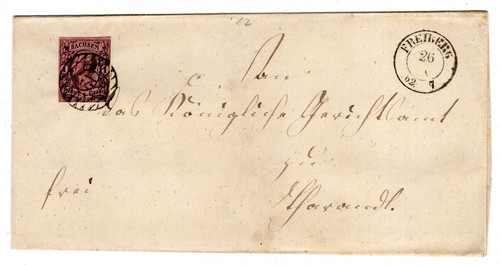 12
SACHSEN
FREIBERG
26
V
62. 7
An
das Königliche Gerichtsamt
zu
Tharandt.
frei